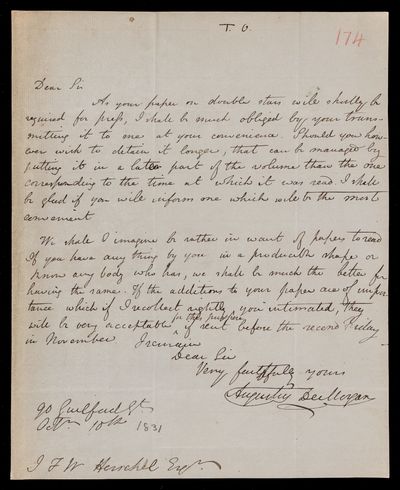 T. O.
174
Dear Sir
As your paper on double stars will shortly be
required for press, I shall be much obliged by your trans-
mitting it to me at your convenience. Should you how-
ever wish to detain it longer, that can be managed by
putting it in a later part of the volume than the one
corresponding to the time at which it was read. I shall
be glad if you will inform me which will be the most
convenient
We shall I imagine be rather in want of papers to read
If you have any thing by you in a producible shape or
know any body who has, we shall be much the better for
having the same. If the additions to your paper are of impor-
tance which if I recollect rightly you intimated, they
for this purpose
will be very acceptable if sent before the second Friday
in November I remain
Dear Sir
Very faithfully yours
Augustus De Morgan
90 Guilford St
Octr 10th 1831
J F W Herschel Esqr.